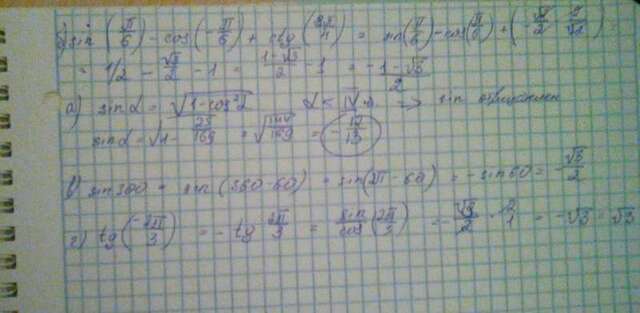 б) sin (π/6) - cos(-π/6) + ctg (3π/4) = sin(π/6) - cos(π/6) + (-√2/2 · 2/√2)
= 1/2 - √3/2 - 1 = 1-√3/2 - 1 = -1-√3/2
а) sin α = √1-cos²α α < IV → sin
sin α = √1 - 25/169 = √144/169 = -12/13
в) sin 300 = sin (360-60) = sin(2π-60) = -sin 60 = -√3/2
г) tg (-2π/3) = -tg 2π/3 = sin/cos (2π/3) = -√3/2 · 2/1 = -√3 = √3